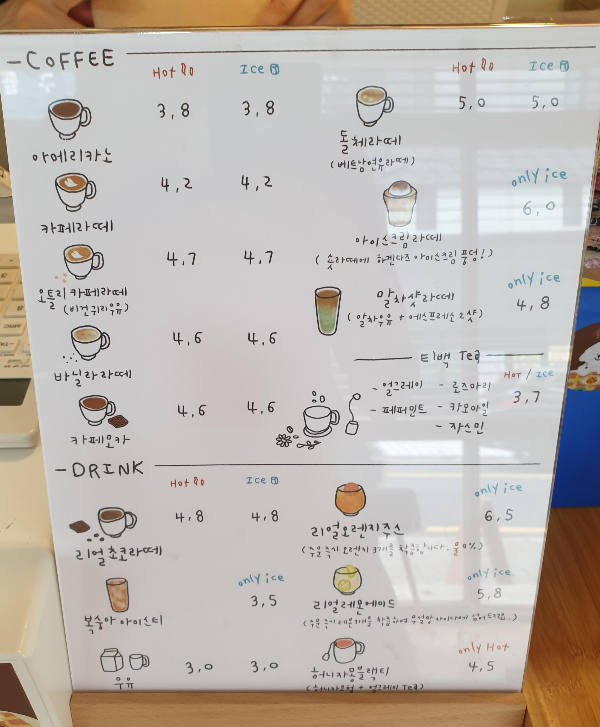 COFFEE
Hot Ice
아메리카노 3,8 3,8
카페라떼 4,2 4,2
오틀리 카페라떼 4,7 4,7
(비건귀리우유)
바닐라라떼 4,6 4,6
카페모카 4,6 4,6
Hot Ice
돌체라떼 5,0 5,0
(베트남연유라떼)
only ice
아이스크림라떼 6,0
(숏라떼에 하겐다즈 아이스크림 퐁덩!)
only ice
말차샷라떼 4,8
(말차우유 + 에스프레소 2샷)
티백 Tea
HOT / ICE
- 얼그레이 - 로즈마리 3,7
- 페퍼민트 - 카모마일
- 자스민
DRINK
Hot Ice
리얼초코라떼 4,8 4,8
only ice
복숭아 아이스티 3,5
우유 3,0 3,0
only ice
리얼오렌지주스 6,5
(주문즉시 오렌지 3개를 착즙합니다. 물0%)
only ice
리얼레몬에이드 5,8
only Hot
허니자몽블랙티 4,5
(허니자몽 + 얼그레이 Tea)